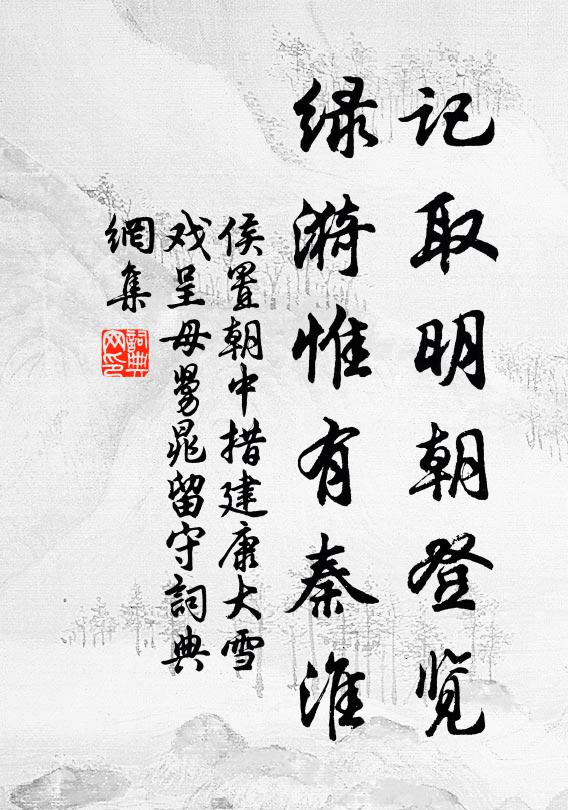 记取明朝登览
绿漪惟有秦淮
侯置朝中措建康大雪
戏呈母舅晁留守詞典
網集
詞典網印